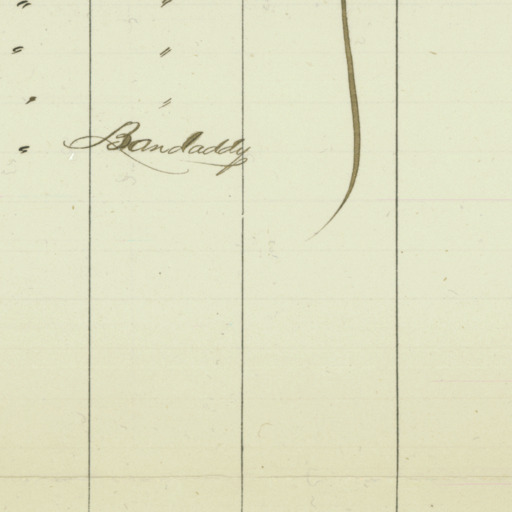 " "
" "
" "
" Bandaddy